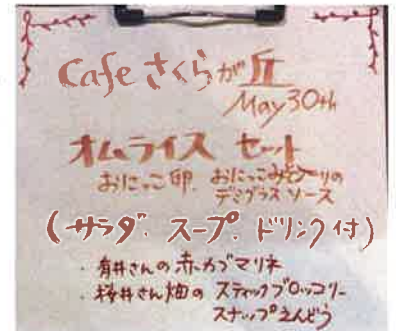 Cafe さくらが丘
May 30th
オムライス セット
おにっこ卵、おにっこみそ入りの
デミグラスソース
(サラダ、スープ、ドリンク付)
・有井さんの赤カブマリネ
・桜井さん畑の スティックブロッコリー
スナップえんどう